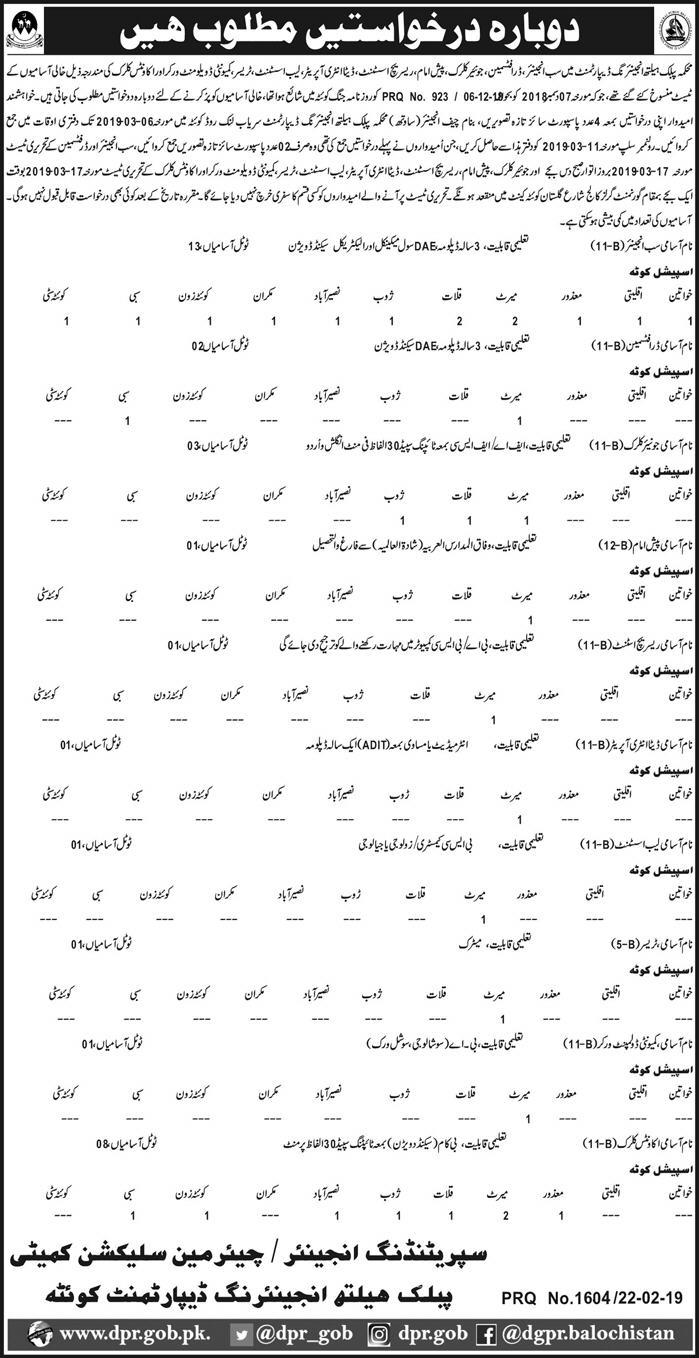 دوبارہ درخواستیں مطلوب ہیں
محکمہ پبلک ہیلتھ انجینئرنگ ڈیپارٹمنٹ میں سب انجینئر، ڈرافٹسمین، جونیئر کلرک، پیش امام، ریسرچ اسسٹنٹ، ڈیٹا انٹری آپریٹر، لیب اسسٹنٹ، ٹریسر، کمیونٹی ڈویلپمنٹ ورکر اور اکاؤنٹس کلرک کی مندرجہ ذیل خالی آسامیوں کے
ٹیسٹ منسوخ کئے گئے تھے، جو کہ مورخہ 07 دسمبر 2018 کو بحوالہ PRQ No. 923 / 06-12-18 کو روزنامہ جنگ کوئٹہ میں شائع ہوا تھا، خالی آسامیوں کو پُر کرنے کے لئے دوبارہ درخواستیں مطلوب کی جاتی ہیں۔ خواہشمند
امیدوار اپنی درخواستیں بمعہ 4 عدد پاسپورٹ سائز تازہ تصویریں، بنام چیف انجینئر (ساؤتھ) محکمہ پبلک ہیلتھ انجینئرنگ ڈیپارٹمنٹ سریاب لنک روڈ کوئٹہ میں مورخہ 06-03-2019 تک دفتری اوقات میں جمع
کروائیں۔ رولنمبر سلپ مورخہ 11-03-2019 کو دفتر ہذا سے حاصل کریں، جن اُمیدواروں نے پہلے درخواستیں جمع کی تھی وہ صرف 02 عدد پاسپورٹ سائز تازہ تصویریں جمع کروائیں، سب انجینئر اور ڈرافٹسمین کے تحریری ٹیسٹ
مورخہ 17-03-2019 بروز اتوار صبح دس بجے اور جونیئر کلرک، پیش امام، ریسرچ اسسٹنٹ، ڈیٹا انٹری آپریٹر، لیب اسسٹنٹ، ٹریسر، کمیونٹی ڈویلپمنٹ ورکر اور اکاؤنٹس کلرک کے تحریری ٹیسٹ مورخہ 17-03-2019 بوقت
ایک بجے بمقام گورنمنٹ گرلز کالج شارع گلستان کوئٹہ کینٹ میں منعقد ہونگے۔ تحریری ٹیسٹ پر آنے والے امیدواروں کو کسی قسم کا سفری خرچ نہیں دیا جائے گا۔ مقررہ تاریخ کے بعد کوئی بھی درخواست قابل قبول نہیں ہوگی۔
آسامیوں کی تعداد میں کمی بیشی ہو سکتی ہے۔
نام آسامی سب انجینئر (B-11) تعلیمی قابلیت، 3 سالہ ڈپلومہ، DAE سول میکینکل اور الیکٹریکل سیکنڈ ڈویژن ٹوٹل آسامیاں، 13
اسپیشل کوٹہ
خواتین اقلیتی معذور میرٹ قلات ژوب نصیر آباد مکران کوئٹہ زون سبی کوئٹہ سٹی
1 1 1 2 2 1 1 1 1 1 1
نام آسامی ڈرافٹسمین (B-11) تعلیمی قابلیت، 3 سالہ ڈپلومہ DAE سیکنڈ ڈویژن ٹوٹل آسامیاں، 02
اسپیشل کوٹہ
خواتین اقلیتی معذور میرٹ قلات ژوب نصیر آباد مکران کوئٹہ زون سبی کوئٹہ سٹی
--- --- --- 1 --- --- --- --- --- 1 ---
نام آسامی جونیئر کلرک (B-11) تعلیمی قابلیت، ایف اے/ ایف ایس سی بمعہ ٹائپنگ سپیڈ 30 الفاظ فی منٹ انگلش و اُردو ٹوٹل آسامیاں، 03
اسپیشل کوٹہ
خواتین اقلیتی معذور میرٹ قلات ژوب نصیر آباد مکران کوئٹہ زون سبی کوئٹہ سٹی
--- --- --- 1 1 1 --- --- --- --- ---
نام آسامی پیش امام (B-12) تعلیمی قابلیت، وفاق المدارس العربیہ (شادۃ العالمیہ) سے فارغ والتحصیل ٹوٹل آسامیاں، 01
اسپیشل کوٹہ
خواتین اقلیتی معذور میرٹ قلات ژوب نصیر آباد مکران کوئٹہ زون سبی کوئٹہ سٹی
--- --- --- 1 --- --- --- --- --- --- ---
نام آسامی ریسرچ اسسٹنٹ (B-11) تعلیمی قابلیت، بی اے/ بی ایس سی کمپیوٹر میں مہارت رکھنے والے کو ترجیح دی جائے گی ٹوٹل آسامیاں، 01
اسپیشل کوٹہ
خواتین اقلیتی معذور میرٹ قلات ژوب نصیر آباد مکران کوئٹہ زون سبی کوئٹہ سٹی
--- --- --- 1 --- --- --- --- --- --- ---
نام آسامی ڈیٹا انٹری آپریٹر (B-11) تعلیمی قابلیت، انٹرمیڈیٹ یا مساوی بمعہ (ADIT) ایک سالہ ڈپلومہ ٹوٹل آسامیاں، 01
اسپیشل کوٹہ
خواتین اقلیتی معذور میرٹ قلات ژوب نصیر آباد مکران کوئٹہ زون سبی کوئٹہ سٹی
--- --- --- 1 --- --- --- --- --- --- ---
نام آسامی لیب اسسٹنٹ (B-11) تعلیمی قابلیت، بی ایس سی کیمسٹری/ زولوجی یا جیالوجی ٹوٹل آسامیاں، 01
اسپیشل کوٹہ
خواتین اقلیتی معذور میرٹ قلات ژوب نصیر آباد مکران کوئٹہ زون سبی کوئٹہ سٹی
--- --- --- 1 --- --- --- --- --- --- ---
نام آسامی، ٹریسر (B-5) تعلیمی قابلیت، میٹرک ٹوٹل آسامیاں، 01
اسپیشل کوٹہ
خواتین اقلیتی معذور میرٹ قلات ژوب نصیر آباد مکران کوئٹہ زون سبی کوئٹہ سٹی
--- --- --- 1 --- --- --- --- --- --- ---
نام آسامی، کمیونٹی ڈولمپنٹ ورکر (B-11) تعلیمی قابلیت، بی۔اے (سوشالوجی، سوشل ورک) ٹوٹل آسامیاں، 01
اسپیشل کوٹہ
خواتین اقلیتی معذور میرٹ قلات ژوب نصیر آباد مکران کوئٹہ زون سبی کوئٹہ سٹی
--- --- --- 1 --- --- --- --- --- --- ---
نام آسامی اکاؤنٹس کلرک (B-11) تعلیمی قابلیت، بی کام (سیکنڈ ڈویژن) بمعہ ٹائپنگ سپیڈ 30 الفاظ پر منٹ ٹوٹل آسامیاں، 08
اسپیشل کوٹہ
خواتین اقلیتی معذور میرٹ قلات ژوب نصیر آباد مکران کوئٹہ زون سبی کوئٹہ سٹی
--- --- 1 2 1 1 1 --- 1 1 ---
سپرینٹنڈنگ انجینئر / چیئرمین سلیکشن کمیٹی
پبلک ہیلتھ انجینئرنگ ڈیپارٹمنٹ کوئٹہ
PRQ No.1604/22-02-19
www.dpr.gob.pk. @dpr_gob dpr.gob @dgpr.balochistan